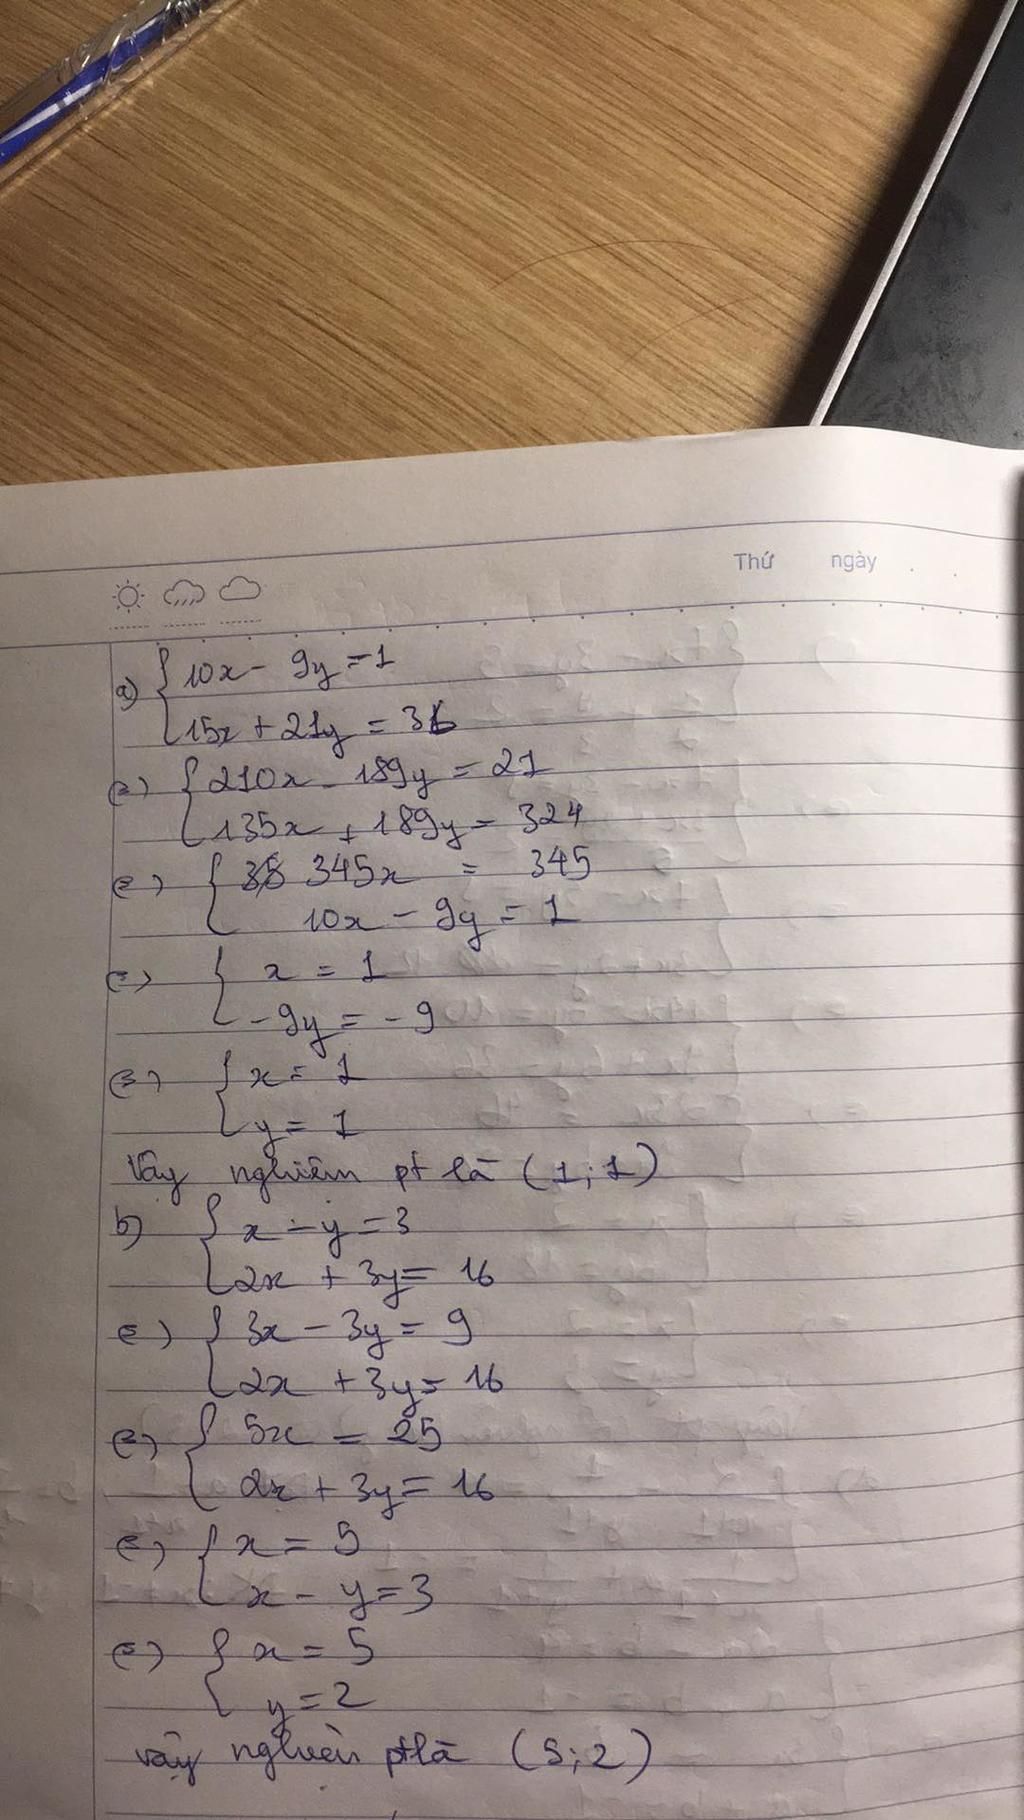 Thứ ngày
a) { 10x - 9y = 1
15x + 21y = 36
<=> { 210x - 189y = 21
135x + 189y = 324
<=> { 345x = 345
10x - 9y = 1
<=> { x = 1
-9y = -9
<=> { x = 1
y = 1
Vậy nghiệm pt là (1; 1)
b) { x - y = 3
2x + 3y = 16
<=> { 3x - 3y = 9
2x + 3y = 16
<=> { 5x = 25
2x + 3y = 16
<=> { x = 5
x - y = 3
<=> { x = 5
y = 2
vậy nghiệm pt là (5; 2)